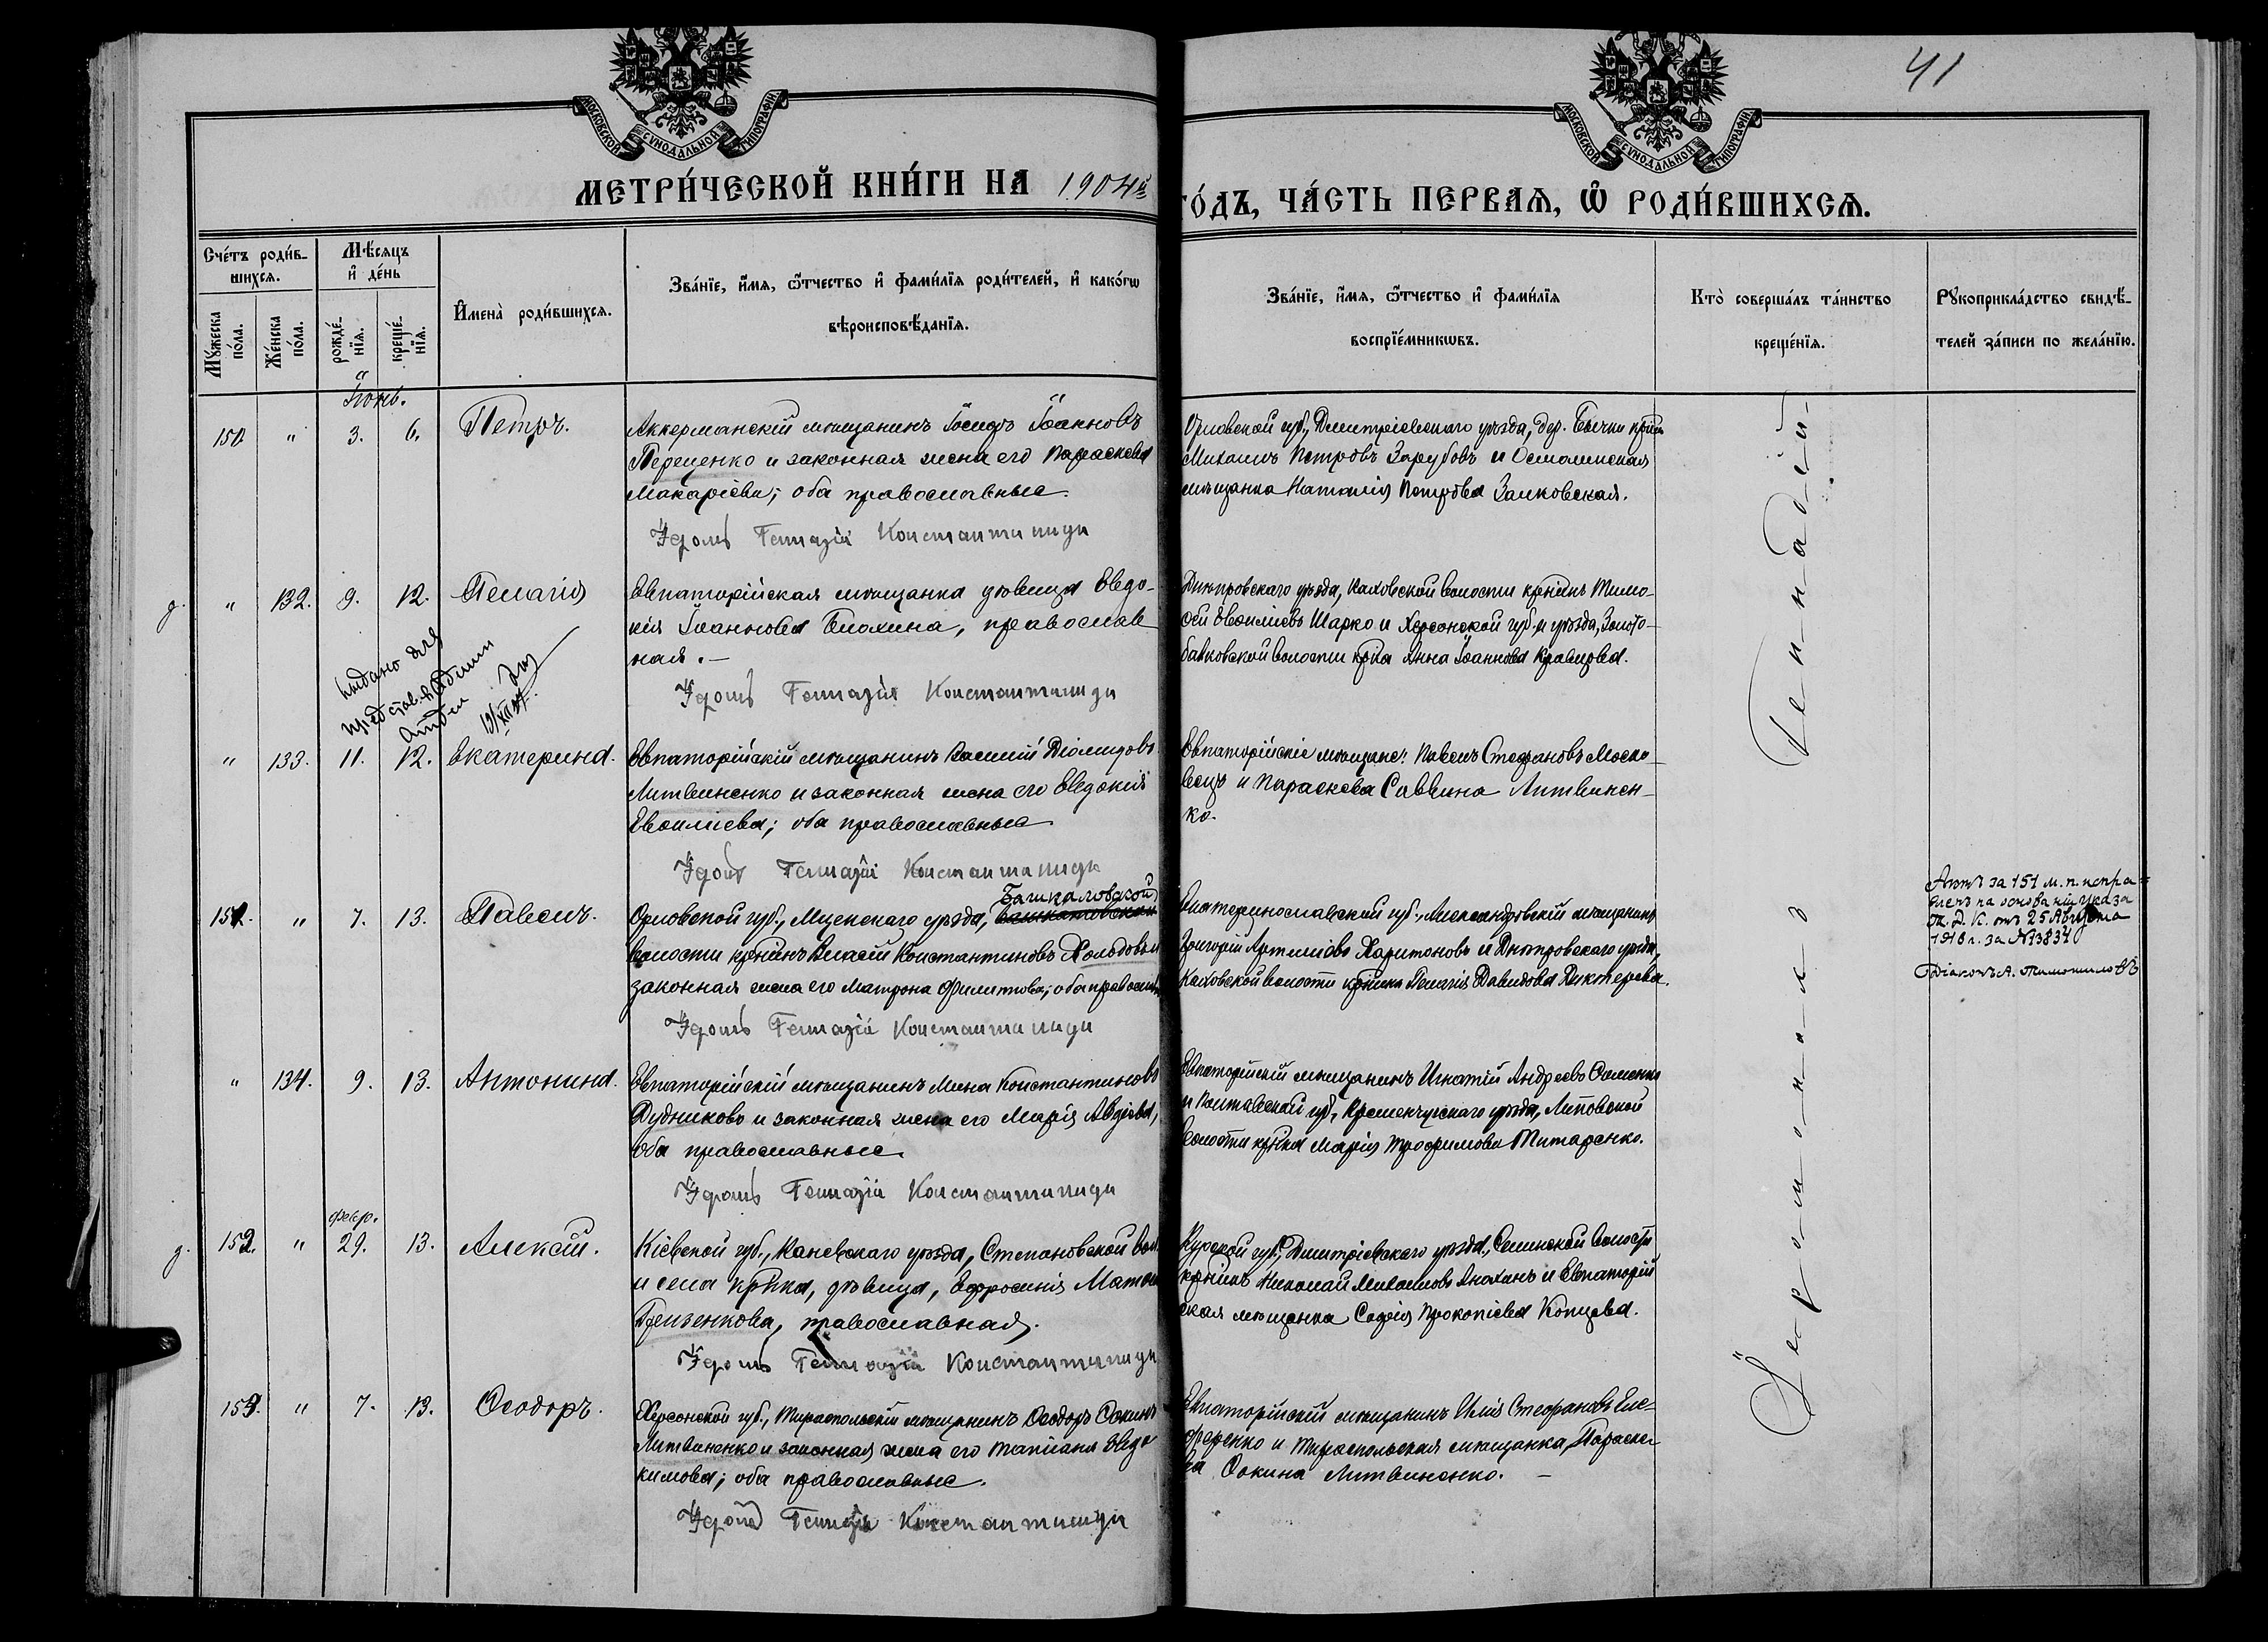 41
МОСКОВСКОЙ СѴНОДАЛЬНОЙ ТИПОГРАФІИ
МОСКОВСКОЙ СѴНОДАЛЬНОЙ ТИПОГРАФІИ
МЕТРИ́ЧЕСКОЙ КНИ́ГИ НА 1904й
ГО́ДЪ, ЧА́СТЬ ПЕРВАЯ, Ѽ РОДИ́ВШИХСѦ.
Сче́тъ роди́в-
шихсѧ.
Мꙋ́жеска
по́ла.
Же́нска
по́ла.
Мѣ́сяцъ
и҆ де́нь
рожде́-
нїѧ.
креще́-
нїѧ.
И҆мена̀ роди́вшихсѧ.
Зва́нїе, и҆́мѧ, ѻ҆́тчество и҆ фами́лїѧ роди́телей, и҆ како́гѡ
вѣроисповѣ́данїѧ.
Зва́нїе, и҆́мѧ, ѻ҆́тчество и҆ фами́лїѧ
воспрїе́мникѡвъ.
Кто̀ соверша́лъ та́инство
креще́нїѧ.
Рꙋкоприкла́дство свидѣ́-
телей за́писи по жела́нїю.
Іюнь.
150. " 3. 6. Петръ.
Аккерманскій мѣщанинъ Іосифъ Іоанновъ
Терещенко и законная жена его Параскева
Макаріева; оба православные.
Іером Геннадій Константиниди
Орловской губ., Дмитріевскаго уѣзда, дер. Бычки кр-нъ
Михаилъ Петровъ Зарубовъ и
мѣщанка Наталія Петрова Заиковская.
д. " 132. 9. 12. Пелагія
Евпаторійская мѣщанка дѣвица Евдо-
кія Іоаннова Блохина, православ
ная.—
Іером Геннадій Константиниди
Днѣпровскаго уѣзда, Каховской волости кр-нинъ Тимо-
фей Евфиміевъ Шарко и Херсонской губ. и уѣзда, Золото-
балковской волости кр-нка Анна Іоаннова Кравцова.
Выдано для
представ. в Админ
отдел
19/XII 27.
" 133. 11. 12. Екатерина.
Евпаторійскій мѣщанинъ Василій Діомидовъ
Литвиненко и законная жена его Евдокія
Евфиміева; оба православные
Іером Геннадій Константиниди
Евпаторійскіе мѣщане: Павелъ Стефановъ Моско-
вецъ и Параскева Саввина Литвинен-
ко.
151. " 7. 13. Павелъ.
Башкатовской
Орловской губ., Мценскаго уѣзда,
волости кр-нинъ Власій Константиновъ
законная жена его Матрона Филиппова; оба правосл
Іером Геннадій Константиниди
Екатеринославской губ., Александровскій мѣщанинъ
Григорій Артеміевъ Харитоновъ и Днѣпровскаго уѣзда,
Каховской волости кр-нка Пелагія Давидова Дихтерева.
Актъ за 151 м. п. испра-
вленъ на основаніи указа
Т. Д. К. отъ 25 Августа
1910 г. за №13834
Діаконъ А.
" 134. 9. 13. Антонина.
Евпаторійскій мѣщанинъ Мина Константиновъ
Дудниковъ и законная жена его Марія Авдіева,
оба православные.
Іером Геннадій Константиниди
Евпаторійскій мѣщанинъ Игнатій Андреевъ Саменко
и Полтавской губ., Кременчугскаго уѣзда, Липовской
волости кр-нка Марія Трофимова Титаренко.
февр.
д. 152. " 29. 13. Алексій.
Кіевской губ., Каневскаго уѣзда, Степановской вол.
и села кр-нка, дѣвица, Евфросинія
Грызенкова, православная.
Іером Геннадій Константиниди
Курской губ., Дмитріевскаго уѣзда, волости
кр-нинъ Николай Михаиловъ Анахинъ и Евпаторій
ская мѣщанка Софія Прокопіева Копцева.
153. " 7. 13. Ѳеодоръ.
Херсонской губ., Тираспольскій мѣщанинъ Ѳеодоръ Ѳокинъ
Литвиненко и законная жена его Татіана Евдо
кимова; оба православные.
Іером Геннадій Константиниди
Евпаторійскій мѣщанинъ Илія Стефановъ Ели-
ференко и Тираспольская мѣщанка, Параске-
ва Ѳокина Литвиненко. —
Іеромонахъ Геннадій